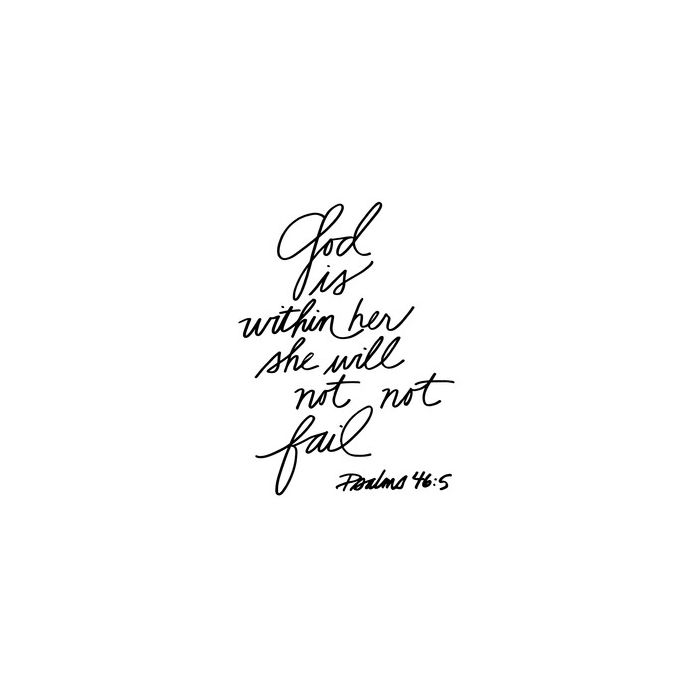 God
is
within her
she will
not not
fail
Psalms 46:5